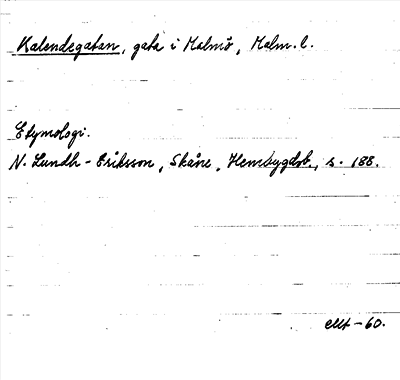 Kalendegatan, gata i Malmö, Malm. l.
Etymologi.
N. Lundh-Eriksson, Skåne, Hembygdsb., s. 188.
-60.